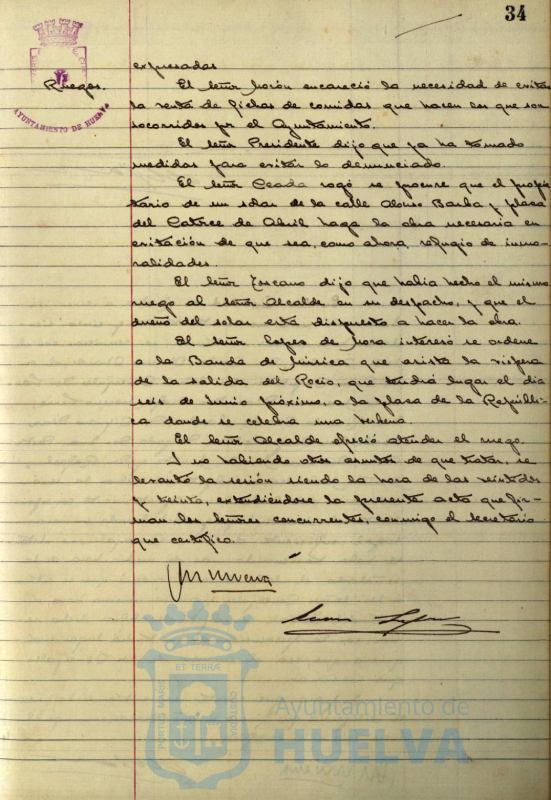 34
AYUNTAMIENTO DE HUELVA
expresadas
Ruegos.
El señor Morón encareció la necesidad de evitar
la venta de fichas de comidas que hacen los que son
socorridos por el Ayuntamiento.
El señor Presidente dijo que ya ha tomado
medidas para evitar lo denunciado.
El señor Ceada rogó se procure que el propie
tario de un solar de la calle Alonso Barba y plaza
del Catorce de Abril haga la obra necesaria en
evitación de que sea, como ahora, refugio de inmo-
ralidades.
El señor Toscano dijo que había hecho el mismo
ruego al señor Alcalde en su despacho, y que el
dueño del solar está dispuesto a hacer la obra.
El señor López de Mora interesó se ordene
a la Banda de Música que asista la víspera
de la salida del Rocío, que tendrá lugar el día
seis de Junio próximo, a la plaza de la Repúbli-
ca donde se celebra una verbena.
El señor Alcalde ofreció atender el ruego.
Y no habiendo otros asuntos de que tratar, se
levantó la sesión siendo la hora de las veintidos
y treinta, extendiéndose la presente acta que fir-
man los señores concurrentes, conmigo el secretario
que certifico.
ET TERRÆ
PORTUS MARIS
CUSTODIA
Ayuntamiento de
HUELVA